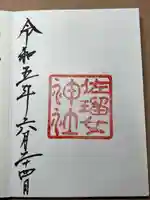 令和五年六月二十四日
佐瑠女
神社